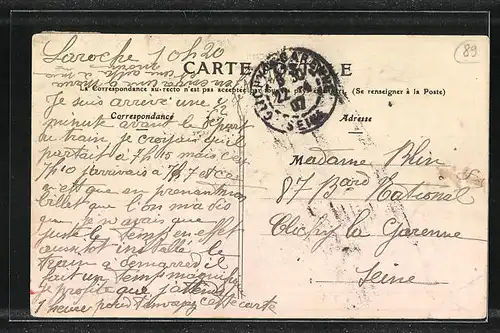 Laroche 10h20
CARTE POSTALE
La Correspondance au recto n'est pas acceptée par tous les pays étrangers (Se renseigner à la Poste)
Correspondance
Adresse
89
Je suis arrivé une
minute avant le départ
du train, je croyais qu'il
partait à 7h10 mais
j'arrivais à 7h7 et ce
n'est que en prenant mon
billet que l'on m'a dit
que je n'avais que
juste le temps en effet
aussitôt installé le
train a démarré il
fait un temps magnifique
je profite que j'attends
1 heure pour t'envoyer cette carte
Madame Rhin
87 Bard National
Clichy la Garenne
Seine
CLICHY
SEINE
22
07